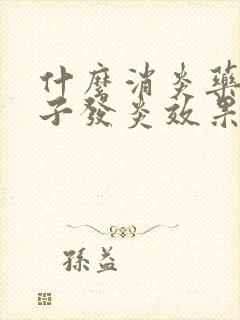 什麼消炎藥
子發炎效果
孫益